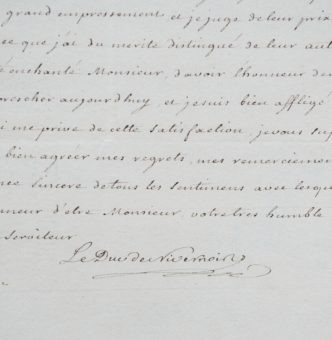 grand empressement et je juge de leur prix
ce que j'ai du merite distingué de leur aut
é enchanté Monsieur, d'avoir l'honneur de
procher aujourdhuy, et je suis bien affligé
i me prive de cette satisfaction. je vous sup
bien agréer mes regrets, mes remerciemen
nce sincere de tous les sentimens avec lesqu
nneur d'etre Monsieur, votre tres humble
serviteur
Le Duc de Nivernois